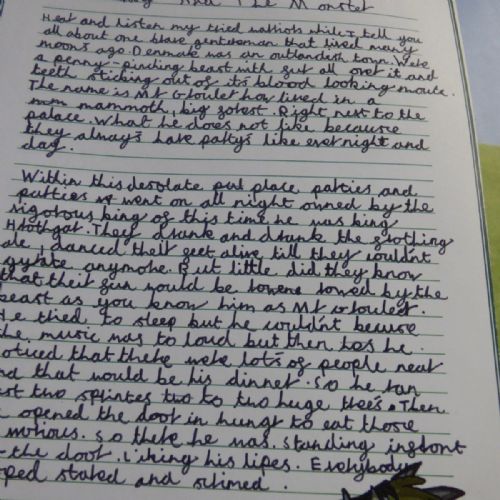 And The Monster
Heat and listen my tried warriors while I tell you
all about one brave gentleman that lived many
moons ago. Denmark was an outlandish town. Were
a penny-pinching beast with gut all over it and
teeth sticking out of its blood looking moute.
The name is Mr Groulet how lived in a
mum mammoth, big forest. Right next to the
palace. What he does not like because
they always have partys like evernight and
day.
Within this desolate place patties and
patties went on all night owned by the
rigorous king of this time he was king
Hrothgar. They drank and drank the frothing
ale, danced their feet alive till they couldn't
gyrate anymore. But little did they know
that their fun would be lowed by the
beast as you know him as Mr Groulet.
He tried to sleep but he couldn't becurse
the music was to loud but then has he
noticed that there were lots of people near
and that would be his dinner. So he ran
two splintes two to two huge trees. Then
opened the door in hungr to eat those
. So there he was. Standing infront
the door. Liking his lipes. Everybody
stated and scrimed.